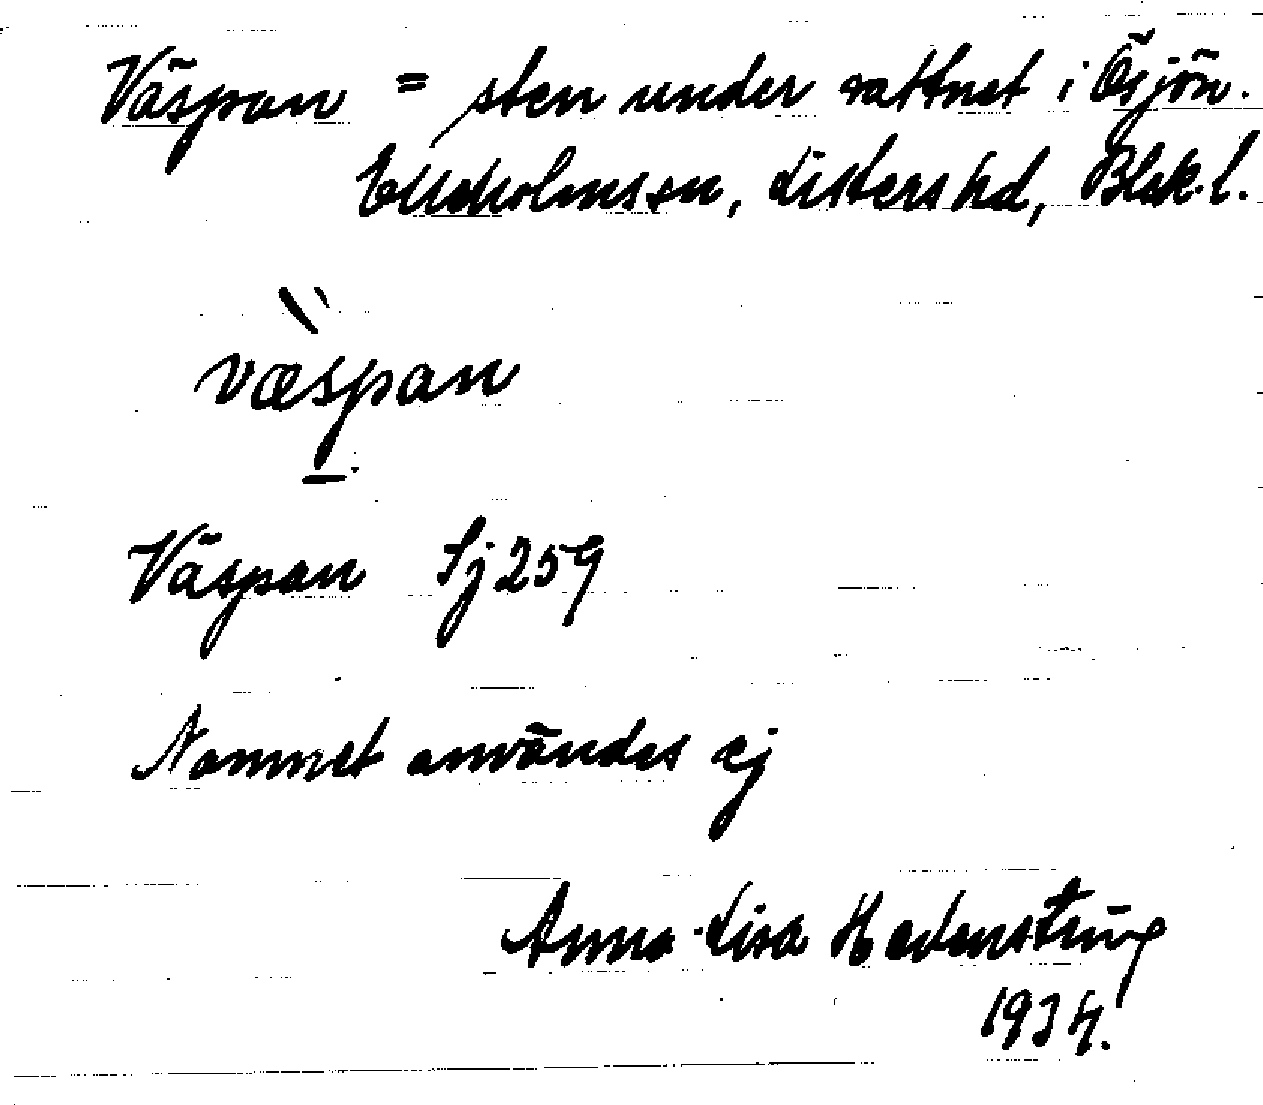 Väspan = sten under vattnet i Ösjön.
Elleholms sn, Listers hd, Blek. l.
væspan
Väspan Sj 259
Namnet användes ej
Anna-Lisa Hedenstierna
1934.